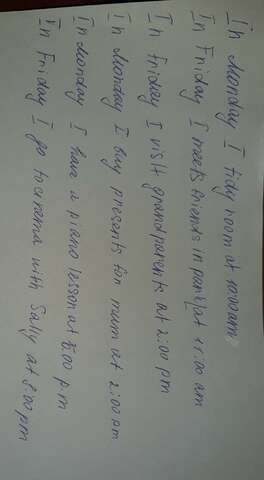 In Monday I tidy room at 10:00 am
In Friday I meets friends in park at 11:00 am
In Friday I visit grandparents at 2:00 pm
In Monday I buy presents for mum at 2:00 pm
In Monday I have a piano lesson at 5:00 pm
In Friday I go to cinema with Sally at 8:00 pm